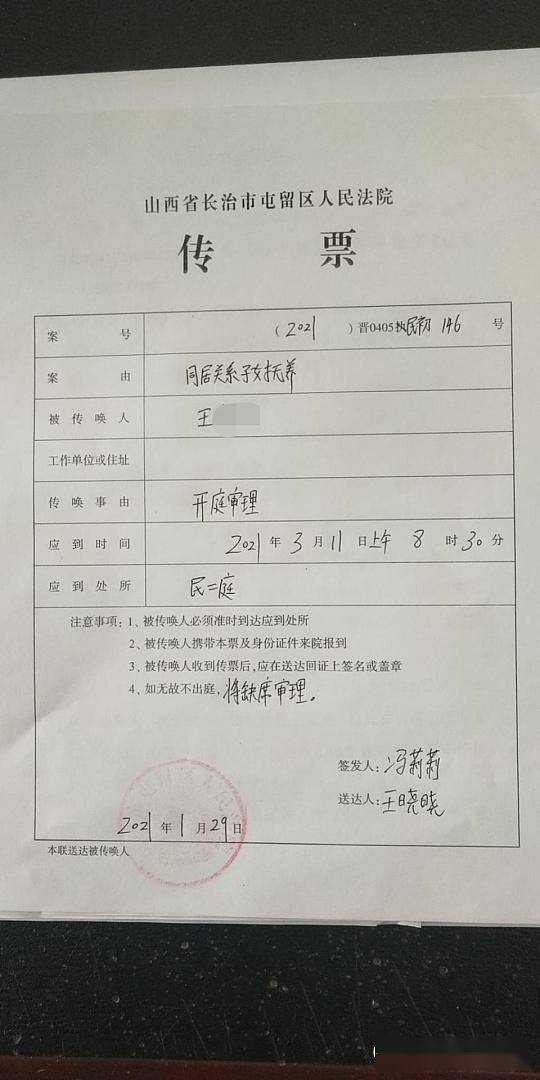 山西省长治市屯留区人民法院
传 票
案 号 (2021)晋0405执民初 146 号
案 由 同居关系子女抚养
被传唤人 王
工作单位或住址
传唤事由 开庭审理
应到时间 2021年3月11日上午8时30分
应到处所 民二庭
注意事项:1、被传唤人必须准时到达应到处所
2、被传唤人携带本票及身份证件来院报到
3、被传唤人收到传票后,应在送达回证上签名或盖章
4、如无故不出庭,将缺席审理。
签发人:冯莉莉
送达人:王晓晓
2021年1月29日
本联送达被传唤人